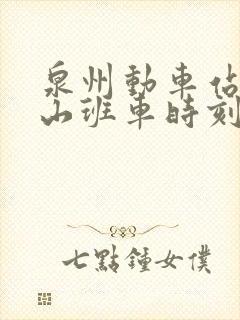 泉州動車佔
山班車時刻
七點鍾女僕